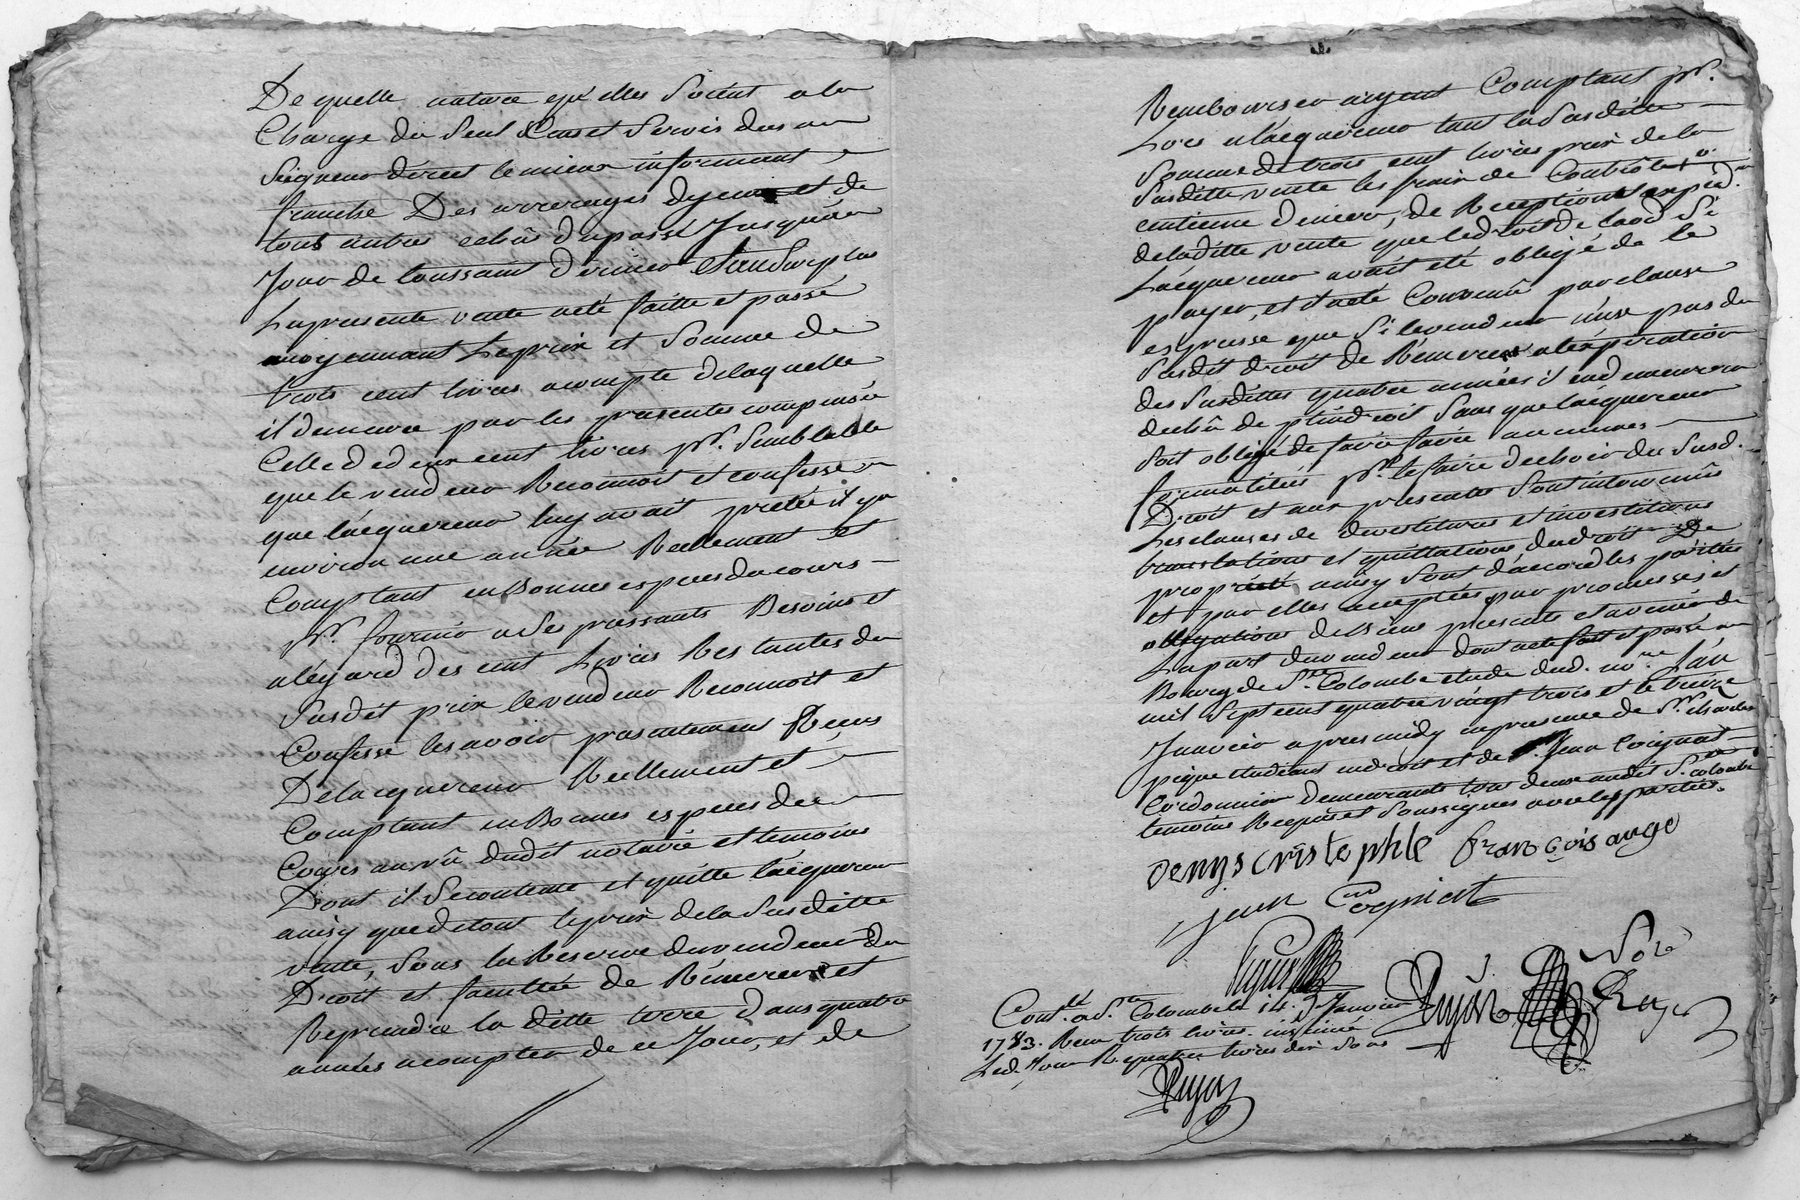 De quelle nature qu'elles soient a la
Charge du seul Cens et servis dus au
seigneur direct le mieux informant
franche Des arrerages d'yceux et de
tous autres echûs du passé jusqu'au
Jour de toussaint dernier
La presente vente a eté faitte et passé
moyennant Le prix et somme de
trois cent livres acompte delaquelle
il demeure par les presentes compensé
Celle de deux cent livres pr. semblable
que le vendeur Reconnoit et confesse
que lacquereur luy avait pretée il ya
environ une année Reellement et
Comptant en Bonnes especes du cours
pr. fournir a Ses pressants Besoins et
alégard Des cent Livres Restantes du
Susdit prix le vendeur Reconnoit et
Confesse les avoir presentement Reçus
De lacquereur Reellement et
Comptant en Bonnes especes du
Cours au vû dudit notaire et temoins
Dont il Se contente et quitte lacquereur
ainsy que de tout le prix de la Susditte
vente, Sous la Reserve du vendeur Du
Droit et faculté de Rémerer et
Reprendre la ditte terre dans quatre
années a compter de ce Jour, et de
Rembourser argent Comptant pr.
Lors a lacquereur tant la Susditte
Somme de trois cent livres prix de la
Susditte vente les frais de Controle
centieme denier, de Reception et exped.on
de laditte vente que le droit de Laod Si
Lacquereur avait eté obligé de le
payer, et a eté Convenû par clause
expresse que Si le vendeur n'use pas du
Susdit droit de Rémerer a lexpiration
des Susdittes quatre années il en demeurera
dechû de plein droit Sans que lacquereur
Soit obligé de faire faire aucunes
formalités pr. le faire dechoir du Susd.
Droit et aux presentes Sont intervenûs
Les clauses de devestitures et investitures
translations et quittations du droit De
propriété ainsy Sont d'accord les parties
et par elles acceptées par promesses et
obligations de biens presents et avenir de
La part du vendeur dont acte fait et passé au
Bourg de Ste. Colombe etude dud. nore. L'an
mil Sept cent quatre vingt trois et le treize
Janvier apres midy en presence de Sr. charles
pique etudiant en droit et de Jean Coignat
Cordonnier demeurants tous deux audit Ste. colombe
temoins Requis et Soussignes avec les parties.
Denys cristophle françois auge
jean Coignat
Cont. a Ste. Colombe le 14. Janvier
1783. Reçu trois livres.
Led. Jour R. quatre livres dix sous